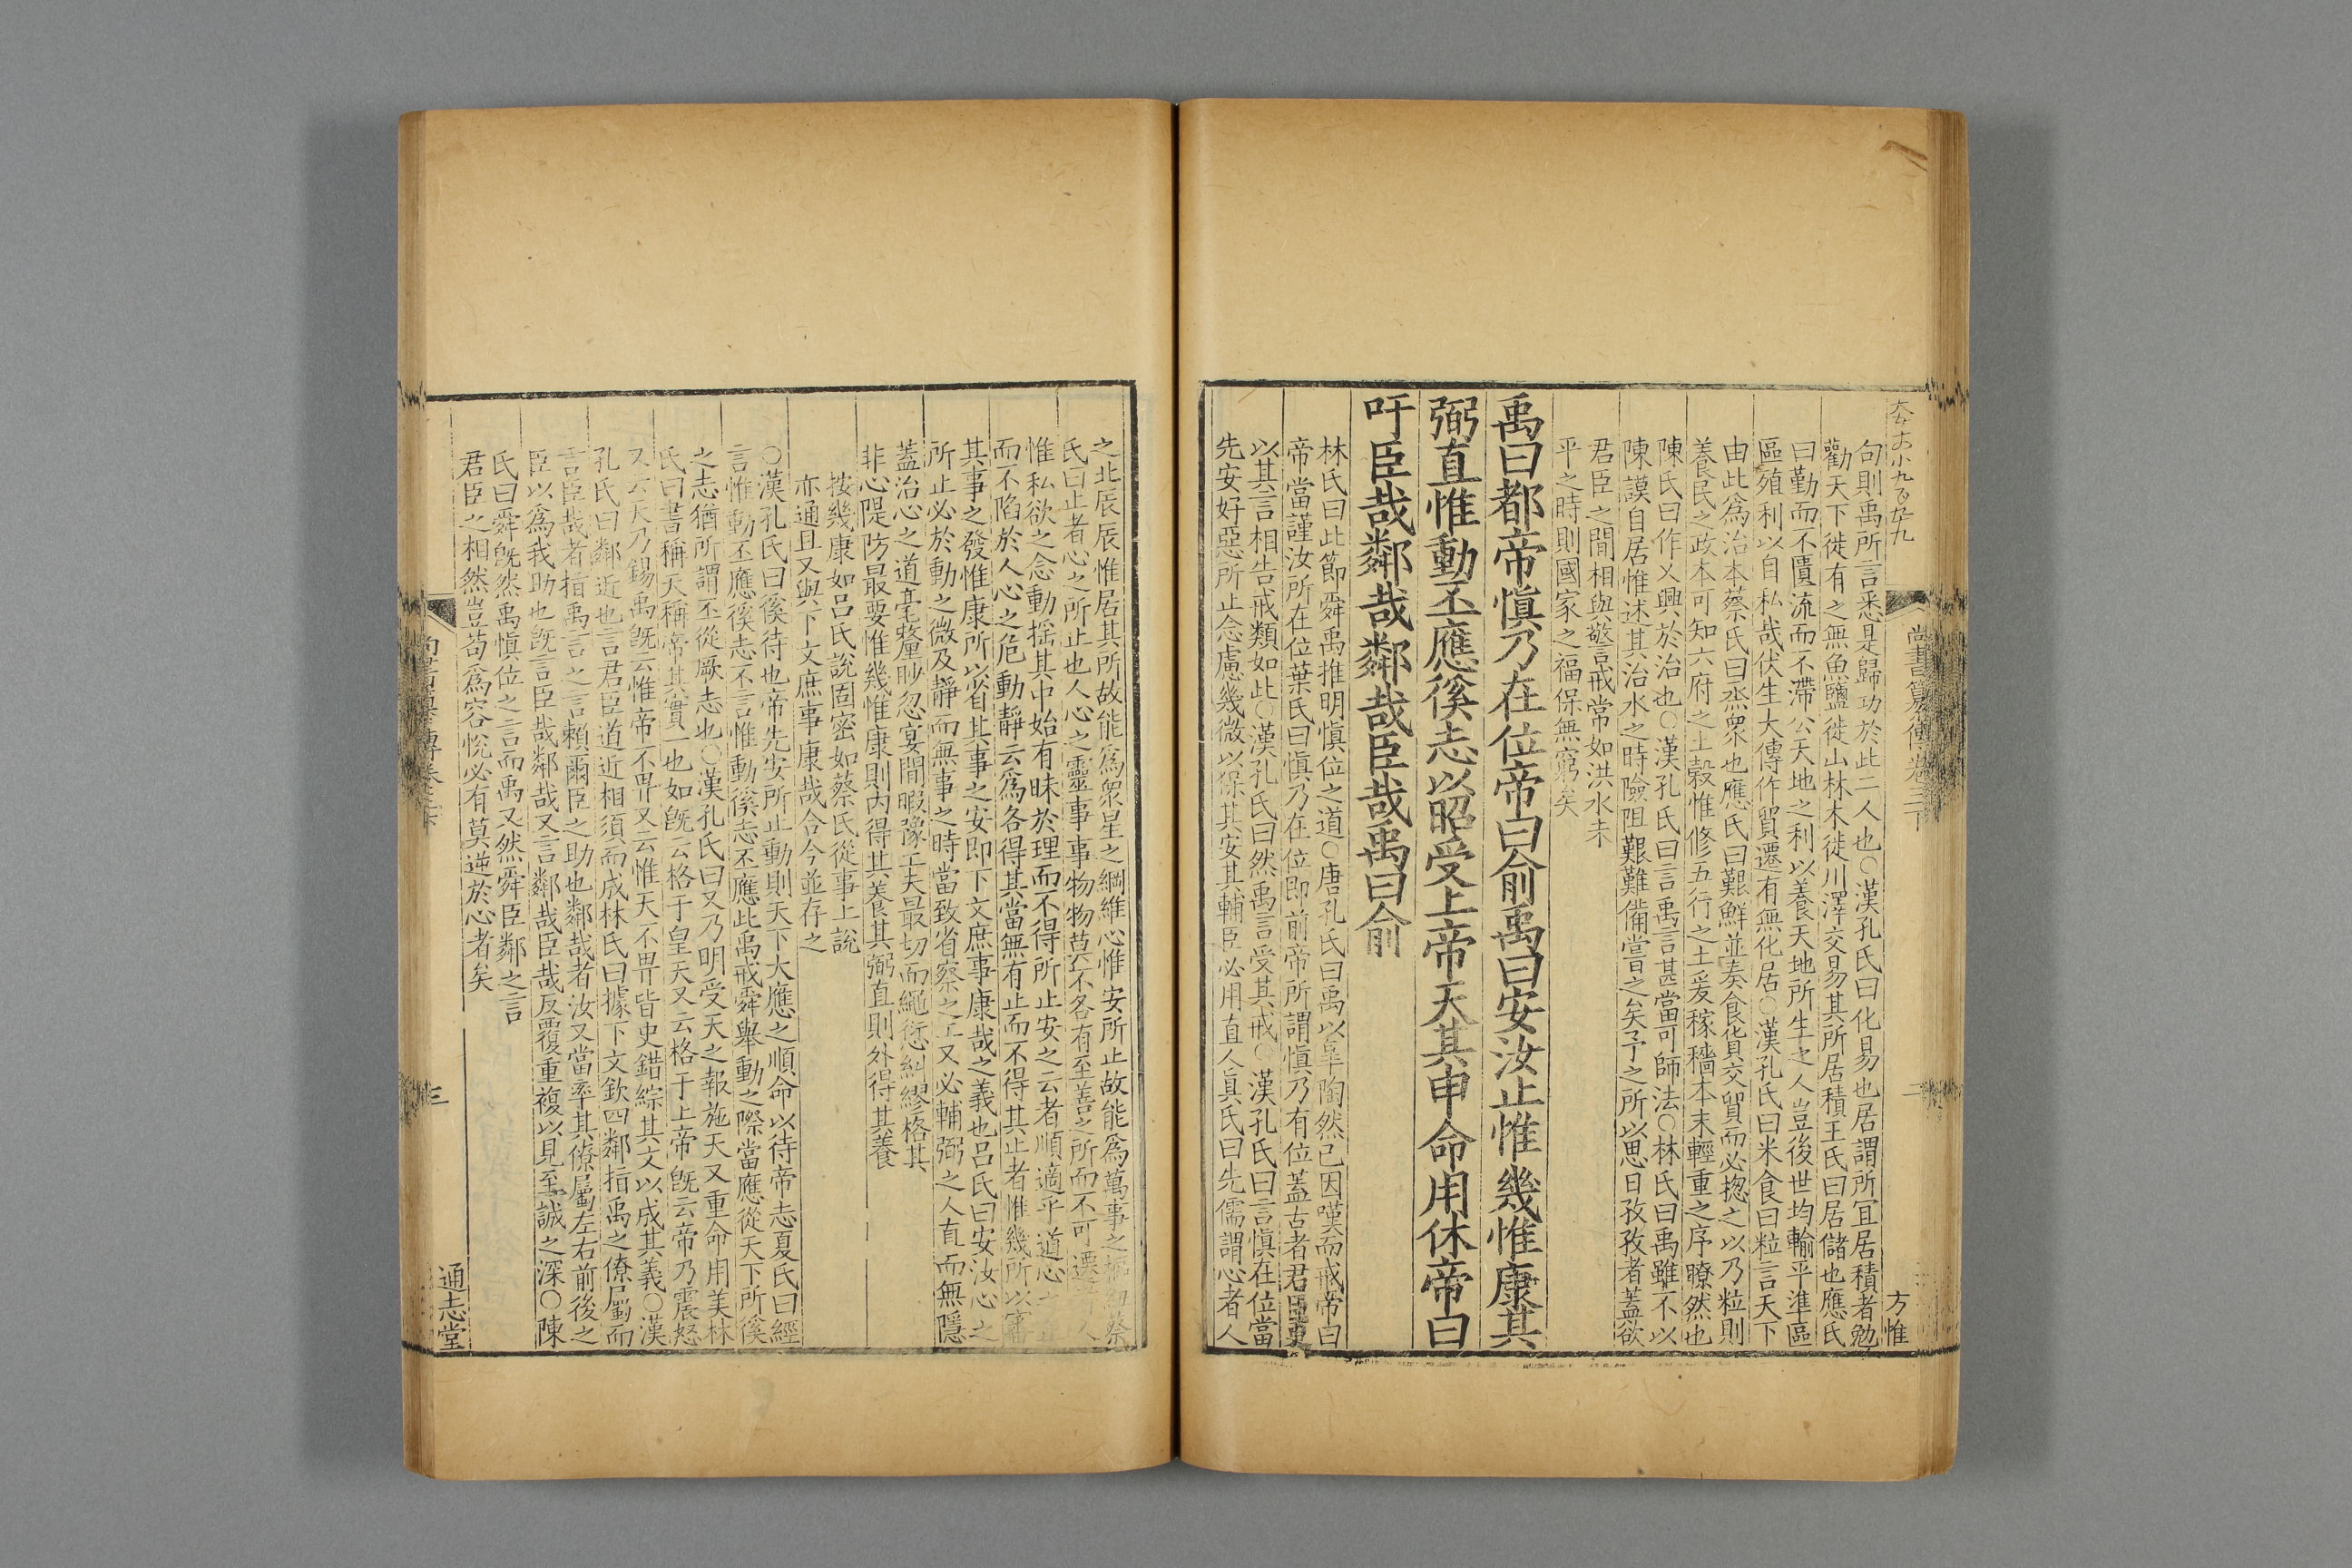 尚書纂傳卷三下
二
方惟
句則禹所言悉是歸功於此二人也○漢孔氏曰化易也居謂所宜居積者勉
勸天下徙有之無魚鹽徙山林木徙川澤交易其所居積王氏曰居儲也應氏
曰勤而不匱流而不滯公天地之利以養天地所生之人豈後世均輸平準區
區殖利以自私哉伏生大傳作貿遷有無化居○漢孔氏曰米食曰粒言天下
由此爲治本蔡氏曰烝衆也應氏曰艱鮮並奏食貨交貿而必揔之以乃粒則
養民之政本可知六府之土榖惟修五行之土爰稼穡本末輕重之序瞭然也
陳氏曰作乂興於治也○漢孔氏曰言禹言甚當可師法○林氏曰禹雖不以
陳謨自居惟述其治水之時險阻艱難備嘗之矣予之所以思日孜孜者蓋欲
君臣之間相與警戒常如洪水未
平之時則國家之福保無窮矣
禹曰都帝愼乃在位帝曰俞禹曰安汝止惟幾惟康其
弼直惟動丕應徯志以昭受上帝天其申命用休帝曰
吁臣哉鄰哉鄰哉臣哉禹曰俞
林氏曰此節舜禹推明愼位之道○唐孔氏曰禹以皐陶然己因嘆而戒帝曰
帝當謹汝所在位葉氏曰愼乃在位即前帝所謂愼乃有位蓋古者君臣更
以其言相告戒類如此○漢孔氏曰然禹言受其戒○漢孔氏曰言愼在位當
先安好惡所止念慮幾微以保其安其輔臣必用直人眞氏曰先儒謂心者人
之北辰辰惟居其所故能爲衆星之綱維心惟安所止故能爲萬事之 蔡
氏曰止者心之所止也人心之靈事事物物莫不各有至善之所而不可遷 人
惟私欲之念動搖其中始有昧於理而不得所止安之云者順適乎道心之正
而不陷於人心之危動靜云爲各得其當無有止而不得其止者惟幾所以審
其事之發惟康所以省其事之安即下文庶事康哉之義也呂氏曰安汝心之
所止必於動之微及靜而無事之時當致省察之工又必輔弼之人直而無隱
蓋治心之道毫釐眇忽宴間暇豫工夫最切而繩愆糾繆格其
非心隄防最要惟幾惟康則內得其養其弼直則外得其養
按幾康如呂氏說固密如蔡氏從事上說
亦通且又與下文庶事康哉合今並存之
○漢孔氏曰徯待也帝先安所止動則天下大應之順命以待帝志夏氏曰經
言惟動丕應徯志不言惟動徯志丕應此禹戒舜舉動之際當應從天下所徯
之志猶所謂丕從厥志也○漢孔氏曰又乃明受天之報施天又重命用美林
氏曰書稱天稱帝其實一也如旣云格于皇天又云格于上帝旣云帝乃震怒
又云天乃錫禹旣云惟帝不畀又云惟天不畀皆史錯綜其文以成其義○漢
孔氏曰鄰近也言君臣道近相須而成林氏曰據下文欽四鄰指禹之僚屬而
言臣哉者指禹言之言賴爾臣之助也鄰哉者汝又當率其僚屬左右前後之
臣以爲我助也旣言臣哉鄰哉又言鄰哉臣哉反覆重複以見至誠之深○陳
氏曰舜旣然禹愼位之言而禹又然舜臣鄰之言
君臣之相然豈苟爲容悅必有莫逆於心者矣
三
通志堂